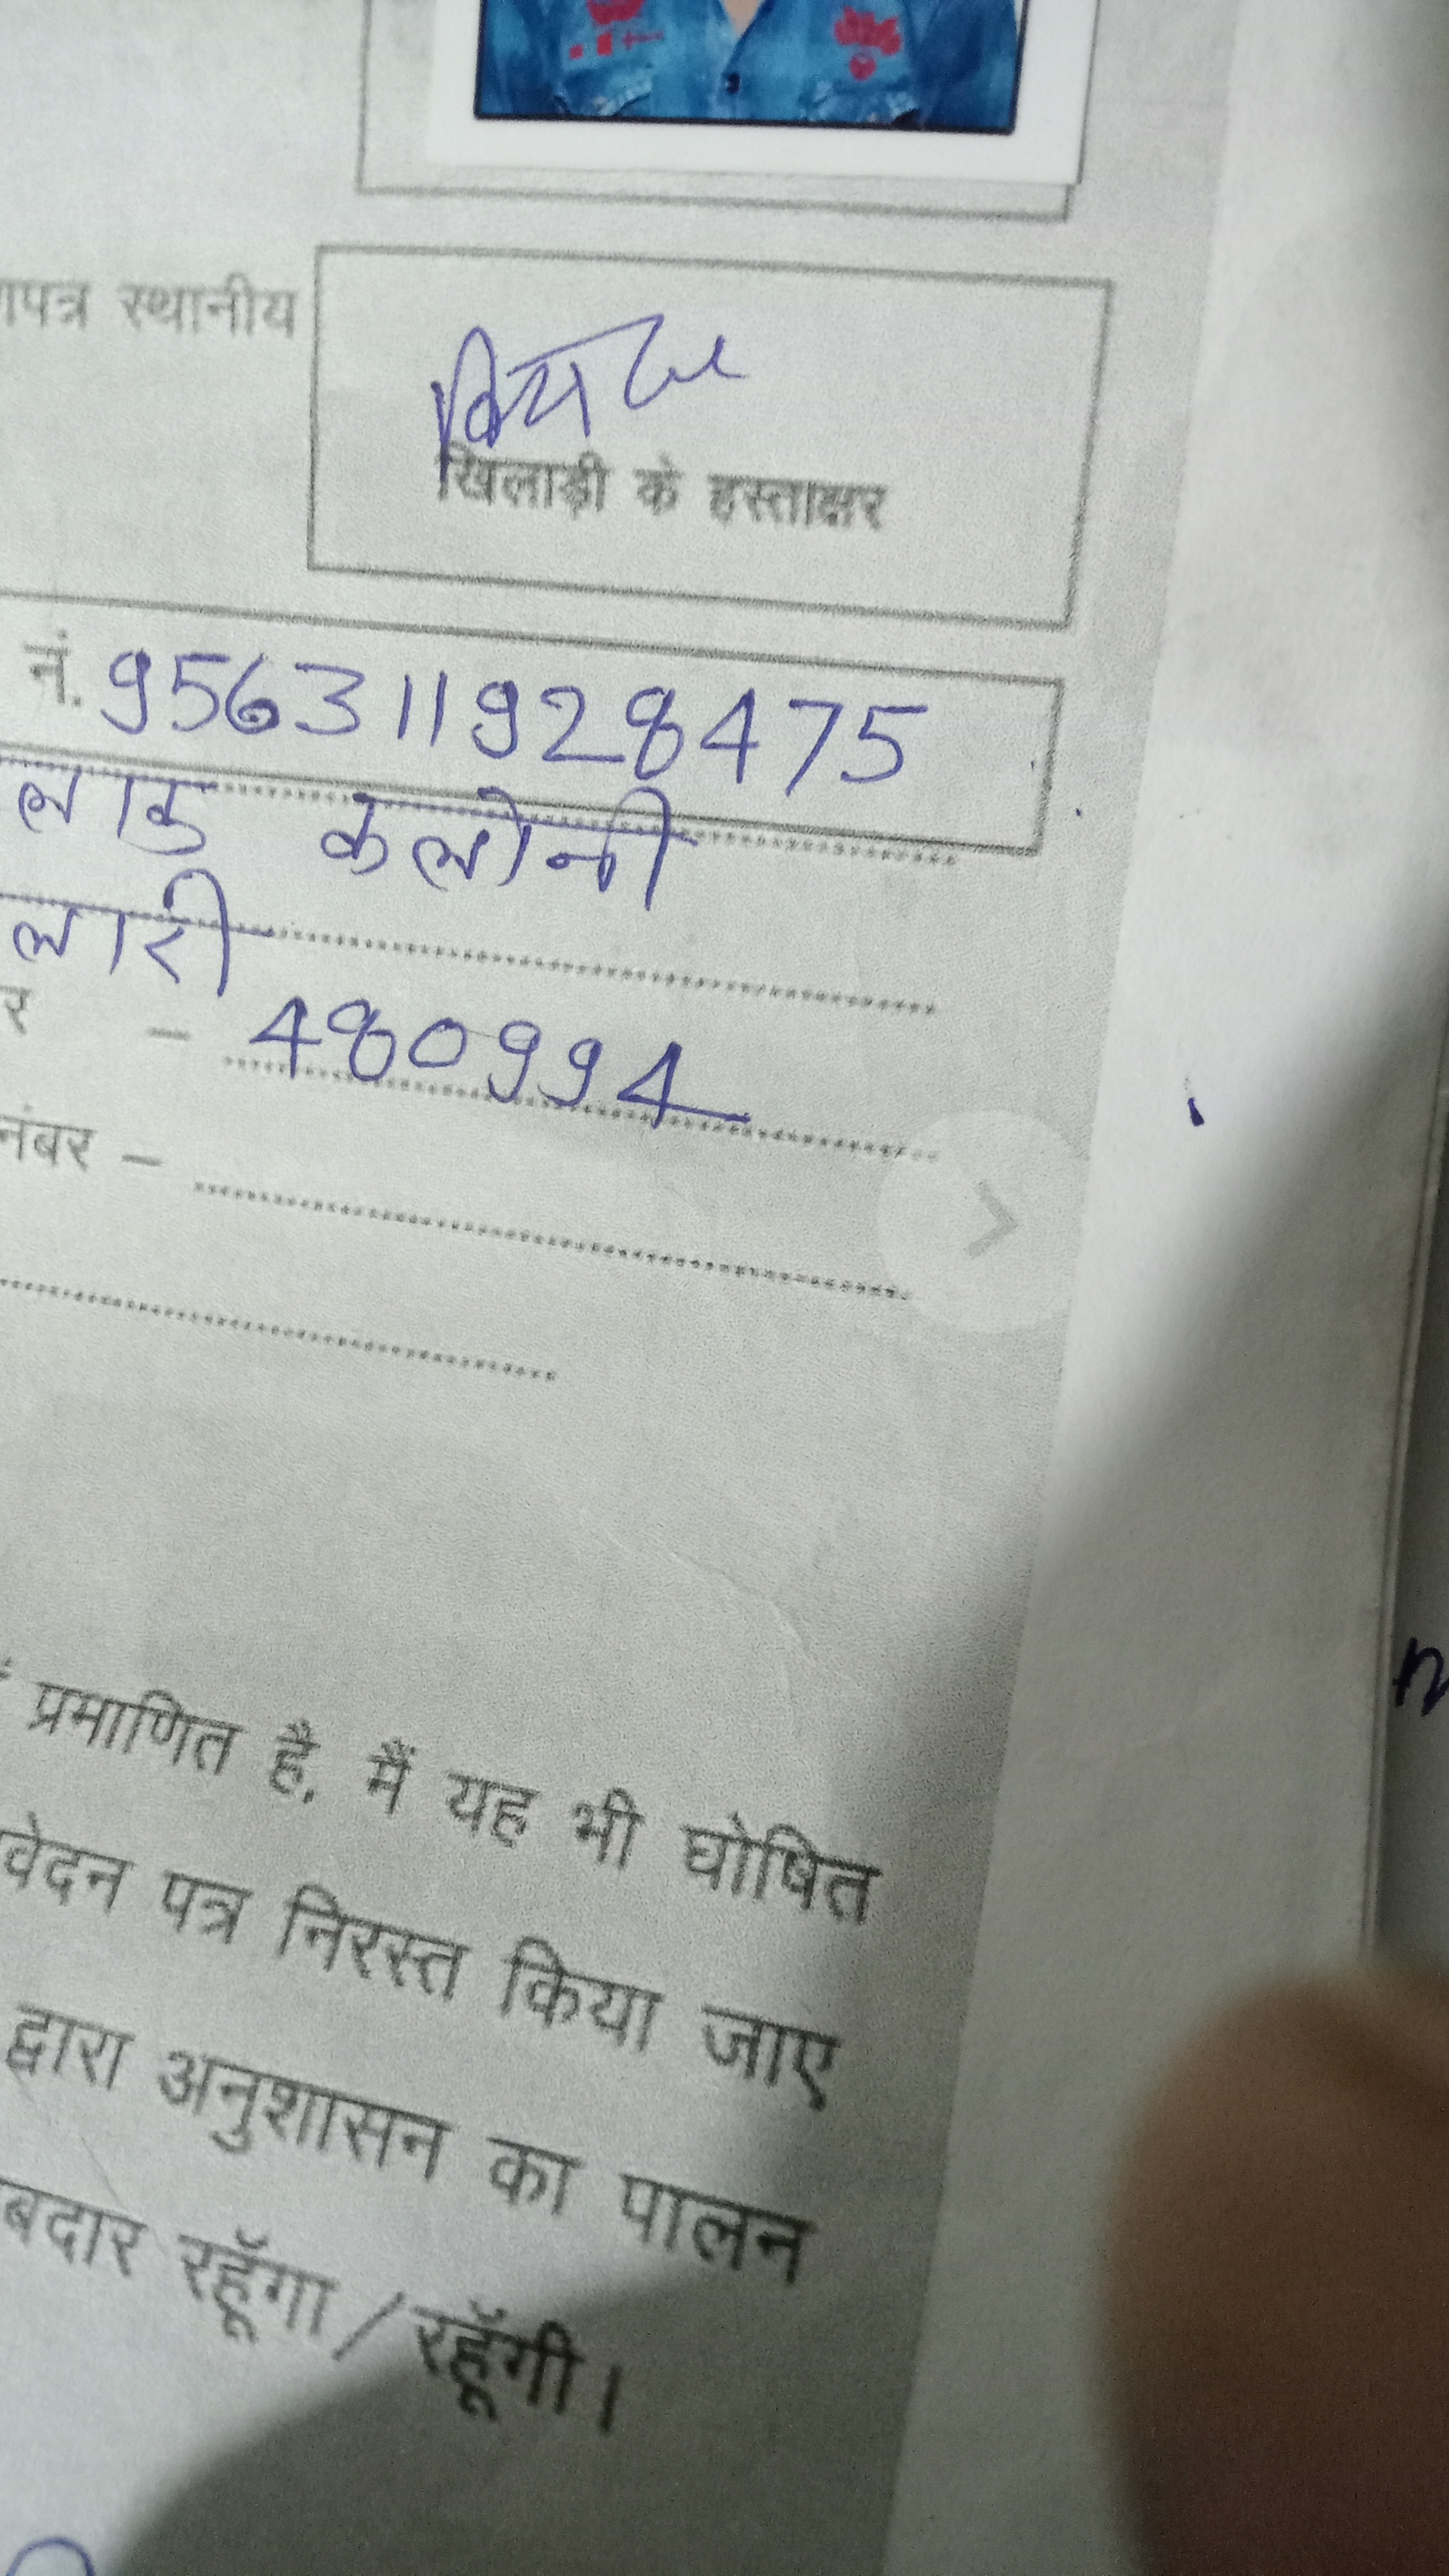 णपत्र स्थानीय
खिलाड़ी के हस्ताक्षर
नं. 956311928475
लाक कलोनी
लारी
र – 480994
नंबर –
प्रमाणित है, मैं यह भी घोषित
वेदन पत्र निरस्त किया जाए
द्वारा अनुशासन का पालन
बदार रहूँगा / रहूँगी।